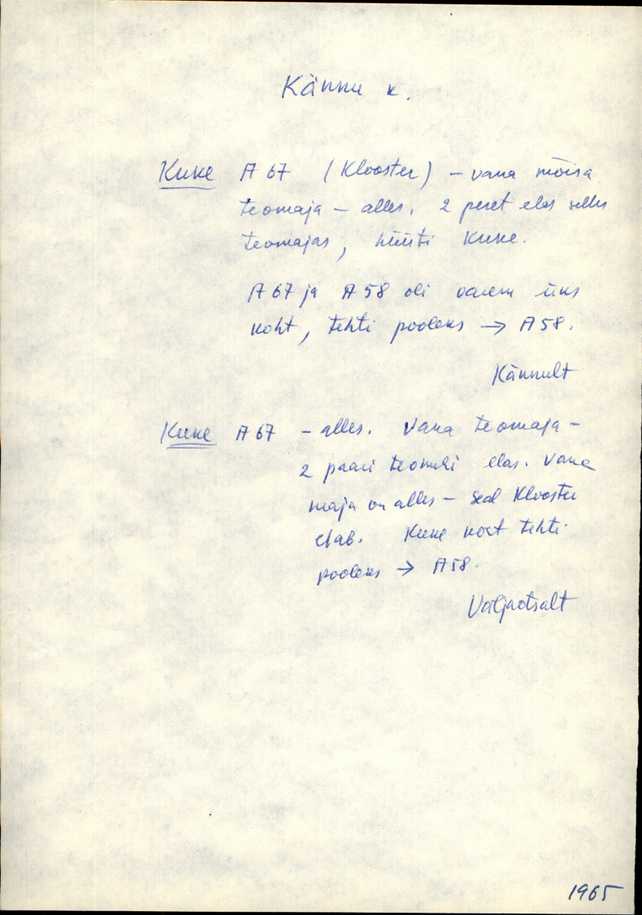 Kännu k.
Kuke A 67 (Klooster) – vana mõisa
teomaja – alles. 2 peret elas selles
teomajas, hüüti Kuke.
A 67 ja A 58 oli varem üks
koht, tehti pooleks → A 58.
Kännult
Kuke A 67 – alles. Vana teomaja –
2 paari teomehi elas. Vana
maja on alles – seal Klooster
elab. Kuke koht tehti
pooleks → A 58.
Väljaotsalt
1965